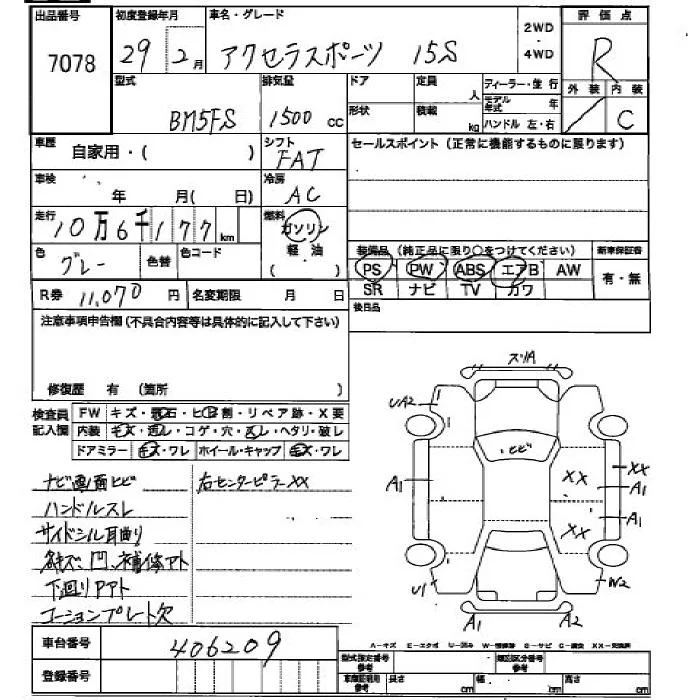 出品番号 初度登録年月 車名・グレード 2WD 評価点
7078 29年 2月 アクセラスポーツ 15S ・ R
4WD
型式 排気量 ドア 定員 人 フィーラー・並行 外装 内装
BM5FS 1500 cc 形状 積載 kg モデル年式 年 / C
ハンドル 左・右
車歴 自家用・( ) シフト FAT セールスポイント (正常に機能するものに限ります)
車検 年 月( 日) 冷房 AC
走行 10万6千177km 燃料 ガソリン
軽・油
( )
色 グレー 色替 色コード 装備品 (純正品に限り○をつけてください) 新車保証書
PS PW ABS エアB AW 有・無
R券 11,070円 名変期限 月 日 SR ナビ TV カワ
注意事項申告欄 (不具合内容等は具体的に記入して下さい) 後日品
修復歴 有 (箇所 )
検査員 FW キズ・飛石・ヒビ割・リペア跡・X要
記入欄 内装 キズ・汚レ・コゲ・穴・スレ・ヘタリ・破レ
ドアミラー キズ・ワレ ホイール・キャップ キズ・ワレ
ナビ画面ヒビ 右センターピラーXX
ハンドルスレ
サイドシル耳曲り
各キズ、凹、補修アト
下廻りPアト
コーションプレート欠
スリA
UA2
ヒビ
A1 XX XX
A1
XX A1
U1 W2
A1 A2
車台番号 406209
A－キズ E－エクボ U－凹み W－補修跡 S－サビ C－腐食 XX－交換済
登録番号 型式指定番号 参考 類別区分番号 参考
車庫証明用 参考 長さ cm 幅 cm 高さ cm